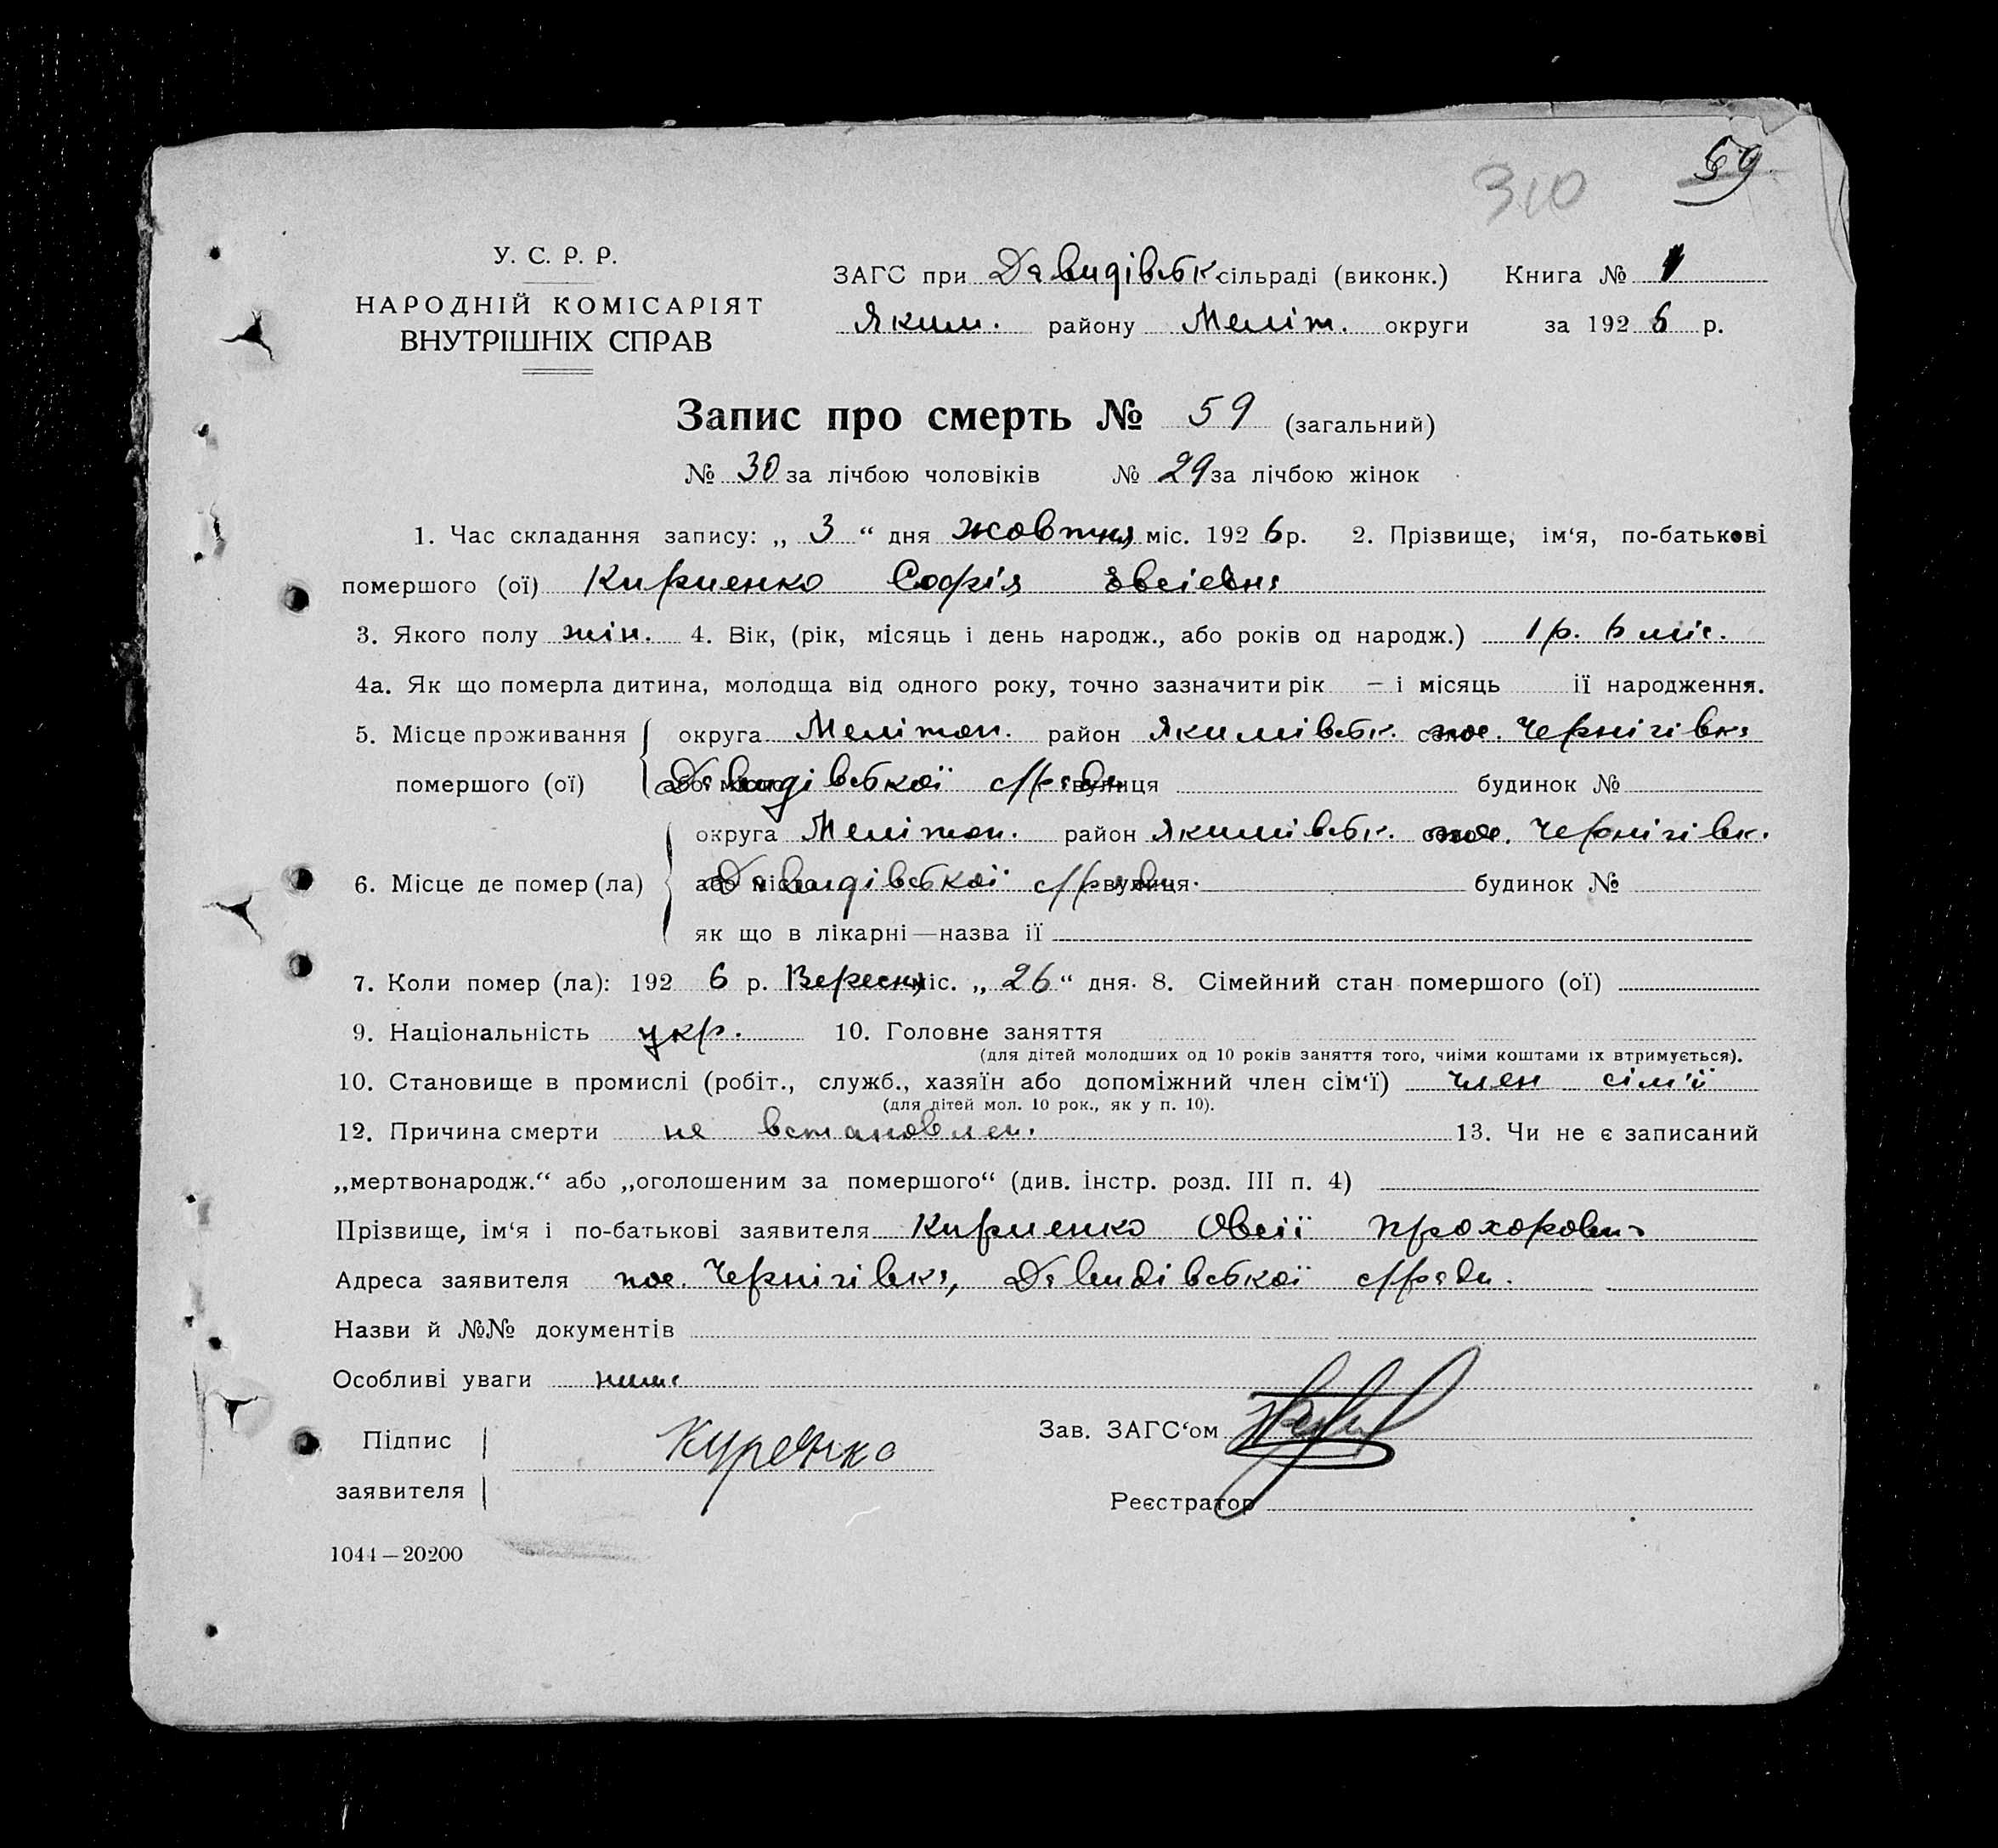 59
310
У. С. Р. Р.
НАРОДНІЙ КОМІСАРІЯТ
ВНУТРІШНІХ СПРАВ
ЗАГС при Давидівськ сільраді (виконк.) Книга № 1
Яким. району Меліт. округи за 1926 р.
Запис про смерть № 59 (загальний)
№ 30 за лічбою чоловіків № 29 за лічбою жінок
1. Час складання запису: „ 3 “ дня жовтня міс. 1926 р. 2. Прізвище, ім‘я, по-батькові
помершого (ої) Кириенко Софія Евсієвна
3. Якого полу жін. 4. Вік, (рік, місяць і день народж., або років од народж.) 1 р. 6 міс.
4а. Як що померла дитина, молодща від одного року, точно зазначити рік – і місяць її народження.
5. Місце проживання округа Мелітоп. район Якимівськ. пос. Чернігівка
помершого (ої) Давидівської с/ради вулиця будинок №
округа Мелітоп. район Якимівськ. пос. Чернігівк.
6. Місце де помер (ла) або місто Давидівської с/ради. вулиця будинок №
як що в лікарні — назва її
7. Коли помер (ла): 1926 р. Вересня міс. „ 26 “ дня. 8. Сімейний стан помершого (ої)
9. Національність укр. 10. Головне заняття
(для дітей молодших од 10 років заняття того, чиїми коштами їх втримується).
10. Становище в промислі (робіт., служб., хазяїн або допоміжний член сім‘ї) член сім'ї
(для дітей мол. 10 рок., як у п. 10).
12. Причина смерти не встановлен. 13. Чи не є записаний
„мертвонародж.“ або „оголошеним за помершого“ (див. інстр. розд. III п. 4)
Прізвище, ім‘я і по-батькові заявителя Кириенко Овсії Прохорович
Адреса заявителя пос. Чернігівка, Давидівської с/ради.
Назви й №№ документів
Особливі уваги нима
Підпис Куренко Зав. ЗАГС‘ом
заявителя Реєстратор
1044—20200